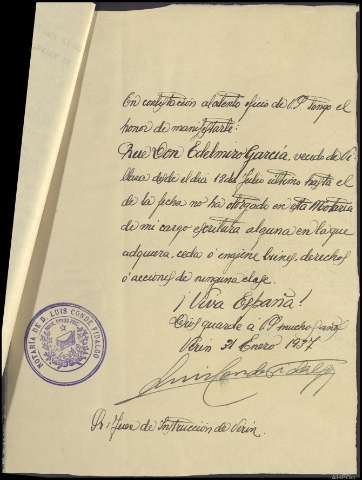 En contestación al atento oficio de V. tengo el
honor de manifestarle:
Que Don Edelmiro García, vecino de
desde el día 18 de Julio último hasta el
de la fecha no ha otorgado en esta Notaría
de mi cargo escritura alguna en la que
adquiera, ceda ó enajene bienes, derechos
ó acciones de ninguna clase.
¡Viva España!
Dios guarde a V. muchos años
Verín 31 Enero 1937
Luis Conde Fidalgo
Sr. Juez de Instrucción de Verín.
NOTARÍA DE D. LUIS CONDE FIDALGO